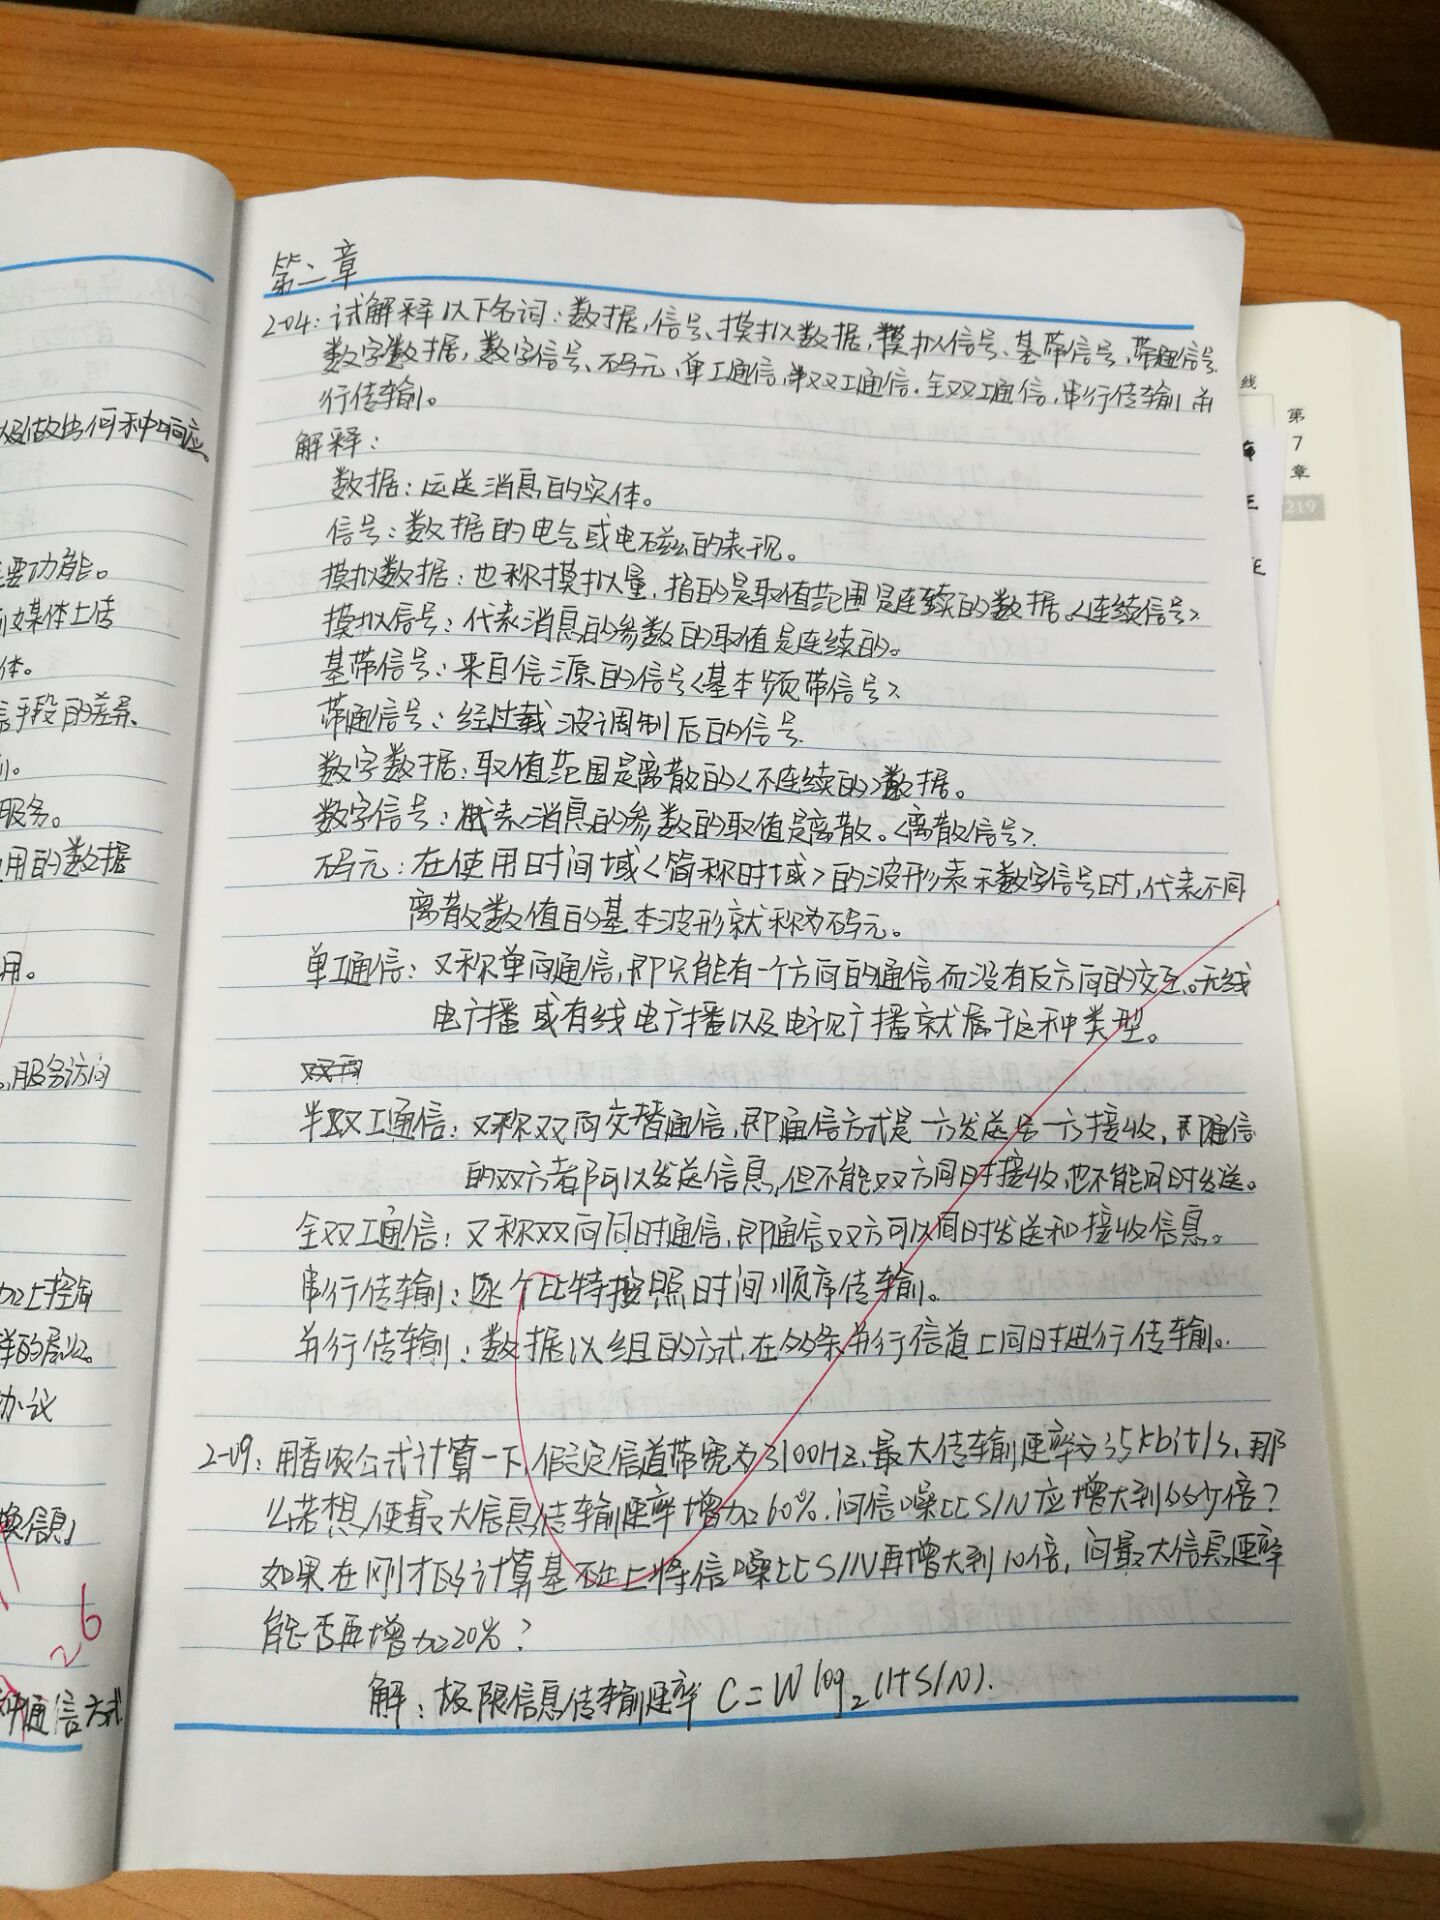 第二章
2-04: 试解释以下名词：数据，信号、模拟数据，模拟信号、基带信号，带通信号
数字数据，数字信号、码元，单工通信，半双工通信，全双工通信，串行传输 并
行传输。
解释：
数据：运送消息的实体。
信号：数据的电气或电磁的表现。
模拟数据：也称模拟量，指的是取值范围是连续的数据。<连续信号>
模拟信号：代表消息的参数的取值是连续的。
基带信号：来自信源的信号<基本频带信号>
带通信号：经过载波调制后的信号
数字数据：取值范围是离散的<不连续的>数据。
数字信号：代表消息的参数的取值是离散。<离散信号>
码元：在使用时间域<简称时域>的波形表示数字信号时，代表不同
离散数值的基本波形就称为码元。
单工通信：又称单向通信，即只能有一个方向的通信而没有反方向的交互。无线
电广播或有线电广播以及电视广播就属于这种类型。
半双工通信：又称双向交替通信，即通信方式是一方发送另一方接收，即通信
的双方都可以发送信息，但不能双方同时接收，也不能同时发送。
全双工通信：又称双向同时通信，即通信双方可以同时发送和接收信息。
串行传输：逐个比特按照时间顺序传输。
并行传输：数据以组的方式，在多条并行信道上同时进行传输。
2-09: 用香农公式计算一下，假定信道带宽为3100Hz，最大传输速率为35kbit/s，那
么若想使最大信息传输速率增加60%，问信噪比S/N应增大到多少倍？
如果在刚才的计算基础上将信噪比S/N再增大到10倍，问最大信息速率
能否再增加20%？
解：极限信息传输速率 C=Wlog₂(1+S/N).
以及做出何种响应。
要功能。
媒体上传
体。
手段的差异、
服务。
用的数据
用。
，服务访问
加上控制
样的层次。
协议
换信息」
26
种通信方式
线
第
7
章
219